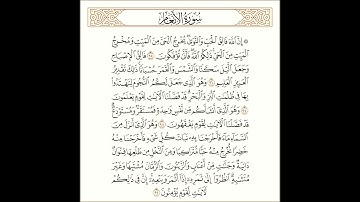 سُورَةُ الأَنْعَامِ
۞ إِنَّ ٱللَّهَ فَالِقُ ٱلْحَبِّ وَٱلنَّوَىٰ يُخْرِجُ ٱلْحَيَّ مِنَ ٱلْمَيِّتِ وَمُخْرِجُ
ٱلْمَيِّتِ مِنَ ٱلْحَيِّ ذَٰلِكُمُ ٱللَّهُ فَأَنَّىٰ تُؤْفَكُونَ ٩٥ فَالِقُ ٱلْإِصْبَاحِ
وَجَعَلَ ٱلَّيْلَ سَكَنًا وَٱلشَّمْسَ وَٱلْقَمَرَ حُسْبَانًا ذَٰلِكَ تَقْدِيرُ
ٱلْعَزِيزِ ٱلْعَلِيمِ ٩٦ وَهُوَ ٱلَّذِي جَعَلَ لَكُمُ ٱلنُّجُومَ لِتَهْتَدُوا۟
بِهَا فِي ظُلُمَٰتِ ٱلْبَرِّ وَٱلْبَحْرِ قَدْ فَصَّلْنَا ٱلْآيَٰتِ لِقَوْمٍ يَعْلَمُونَ
٩٧ وَهُوَ ٱلَّذِي أَنشَأَكُم مِّن نَّفْسٍ وَٰحِدَةٍ فَمُسْتَقَرٌّ وَمُسْتَوْدَعٌ
قَدْ فَصَّلْنَا ٱلْآيَٰتِ لِقَوْمٍ يَفْقَهُونَ ٩٨ وَهُوَ ٱلَّذِي أَنزَلَ مِنَ
ٱلسَّمَاءِ مَاءً فَأَخْرَجْنَا بِهِ نَبَاتَ كُلِّ شَيْءٍ فَأَخْرَجْنَا مِنْهُ
خَضِرًا نُّخْرِجُ مِنْهُ حَبًّا مُّتَرَاكِبًا وَمِنَ ٱلنَّخْلِ مِن طَلْعِهَا قِنْوَانٌ
دَانِيَةٌ وَجَنَّٰتٍ مِّنْ أَعْنَابٍ وَٱلزَّيْتُونَ وَٱلرُّمَّانَ مُشْتَبِهًا وَغَيْرَ
مُتَشَٰبِهٍ ٱنظُرُوا۟ إِلَىٰ ثَمَرِهِ إِذَا أَثْمَرَ وَيَنْعِهِ إِنَّ فِي ذَٰلِكُمْ
لَآيَٰتٍ لِّقَوْمٍ يُؤْمِنُونَ ٩٩